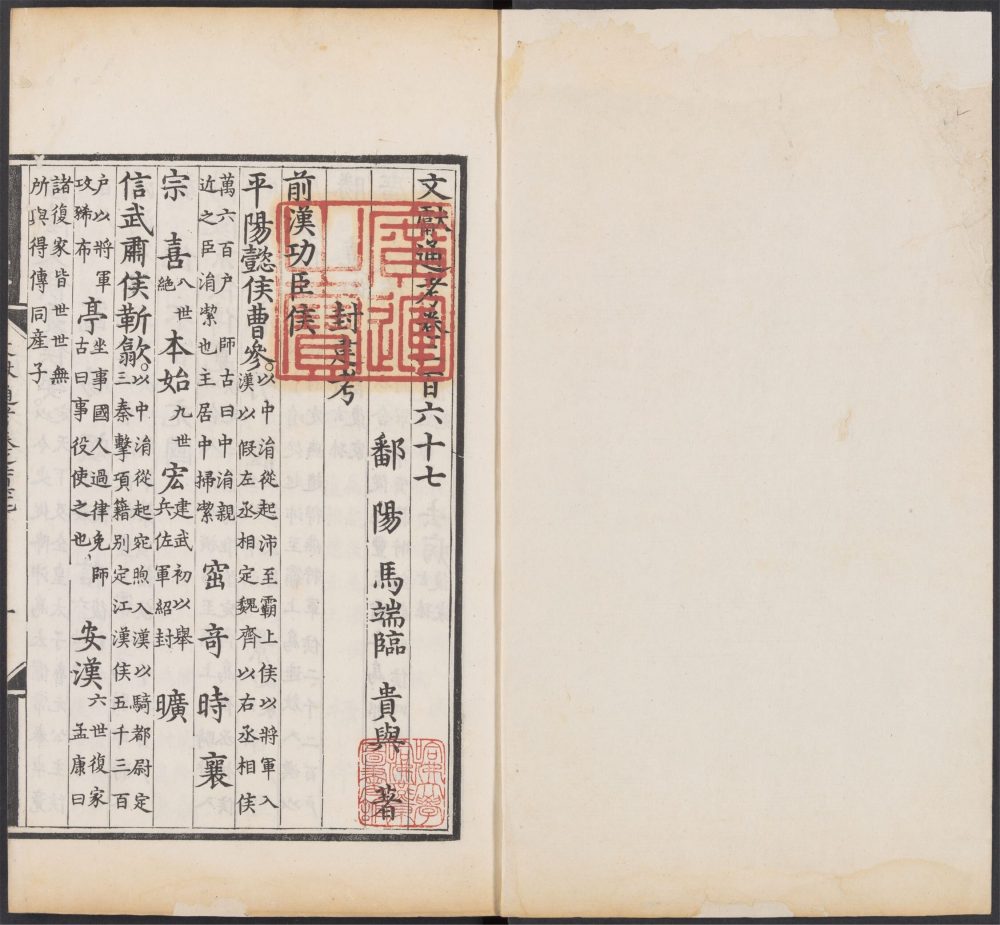 文獻通考卷二百六十七
鄱陽馬端臨貴與著
封建考
前漢功臣侯
平陽懿侯曹參。以中涓從起沛至霸上侯以將軍入
漢以假左丞相定魏齊以右丞相侯
萬六百戶師古曰中涓親
近之臣涓潔也主居中掃潔
窋竒時襄
宗喜八世
絶本始九世宏建武初以舉
兵佐軍紹封曠
信武肅侯靳歙。以中涓從起宛朐入漢以騎都尉定
三秦擊項籍别定江漢侯五千三百
户以將軍
攻豨布亭坐事國人過律免師
古曰事役使之也安漢六世復家
孟康曰
諸復家皆世世無
所與得傳同産子
哈佛大學